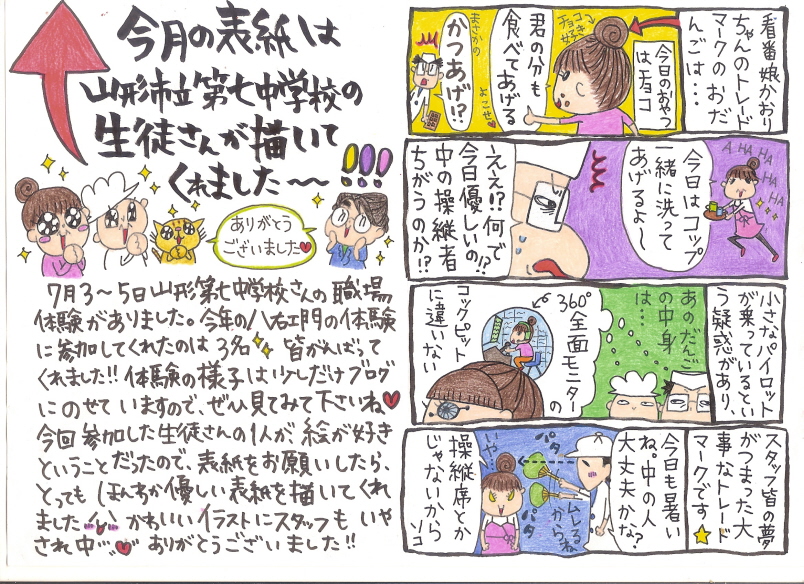 今月の表紙は
山形市立第七中学校の
生徒さんが描いて
くれました〜!!!
ありがとう
ございました
7月3〜5日山形第七中学校さんの職場
体験がありました。今年の八右エ門の体験
に参加してくれたのは3名 皆がんばって
くれました!!体験の様子は少しだけブログ
にのせていますので、ぜひ見てみて下さいね
今回参加した生徒さんの1人が、絵が好き
ということだったので、表紙をお願いしたら、
とってもほんわか優しい表紙を描いてくれ
ました かわいいイラストにスタッフもいや
され中… ありがとうございました!!
看番娘かおり
ちゃんのトレード
マークのおだ
んごは…
今日のおやつ
はチョコ
チョコ
好き
君の分も
食べてあげる
まさかの
かつあげ!?
よこせ
A HA HA
HA HA
今日はコップ
一緒に洗って
あげるよ〜
ええ!?何で
今日優しいの!?
中の操縦者
ちがうのか!?
小さなパイロット
が乗っているとい
う疑惑があり、
あのだんご
の中身
は…
360°
全面モニターの
コックピット
に違いない
スタッフ皆の夢
がつまった大
事なトレード
マークです
今日も暑い
ね。中の人
大丈夫かな?
ムレるね
から
パタ
パタ
いや
操縦席とか
じゃないから
ソコ